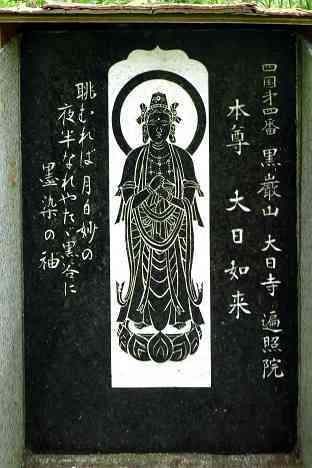 四国第四番 黒巌山 大日寺 遍照院
本尊 大日如来
眺むれば月白妙の
夜半なれやたゞ黒谷に
墨染の袖